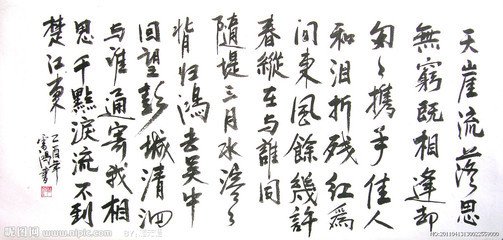 天崖流落思
無窮既相逢却
匆々携手佳人
和泪折残紅為
问東風餘幾許
春縱在与誰同
隨堤三月水溶々
背归鴻去吴中
回望彭城清泗
与谁通寄我相
思千點淚流不到
楚江東
乙酉年
書
昵图网 www.nipic.com